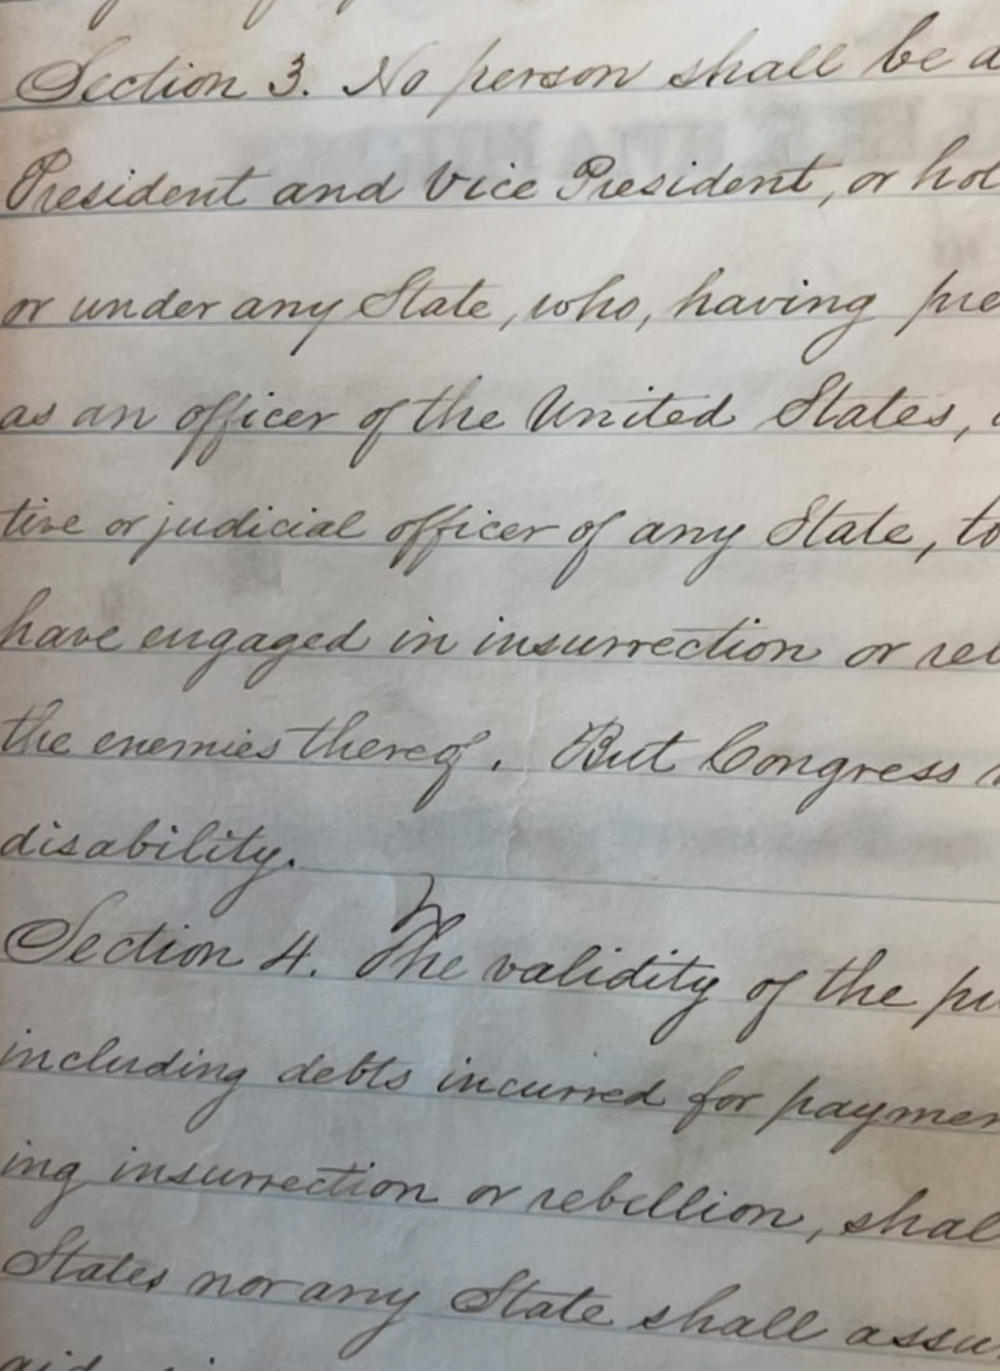 Section 3. No person shall be a
President and Vice President, or hol
or under any State, who, having pre
as an officer of the United States,
tive or judicial officer of any State, to
have engaged in insurrection or re
the enemies thereof. But Congress
disability.
Section 4. The validity of the pu
including debts incurred for paymen
ing insurrection or rebellion, shal
States nor any State shall assu